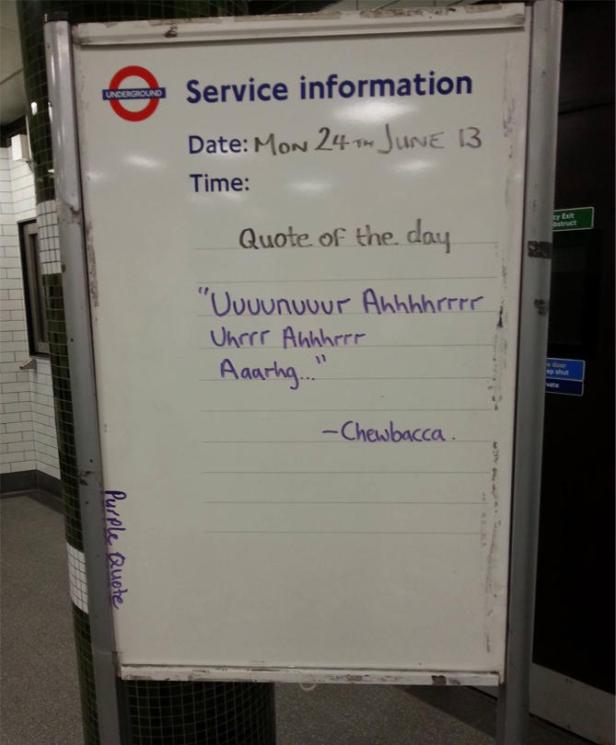 UNDERGROUND
Service information
Date: MON 24TH JUNE 13
Time:
Quote of the day
"Uuuunuuur Ahhhhrrrr
Uhrrr Ahhhrrr
Aaarhg..."
-Chewbacca.
Purple Quote
Exit